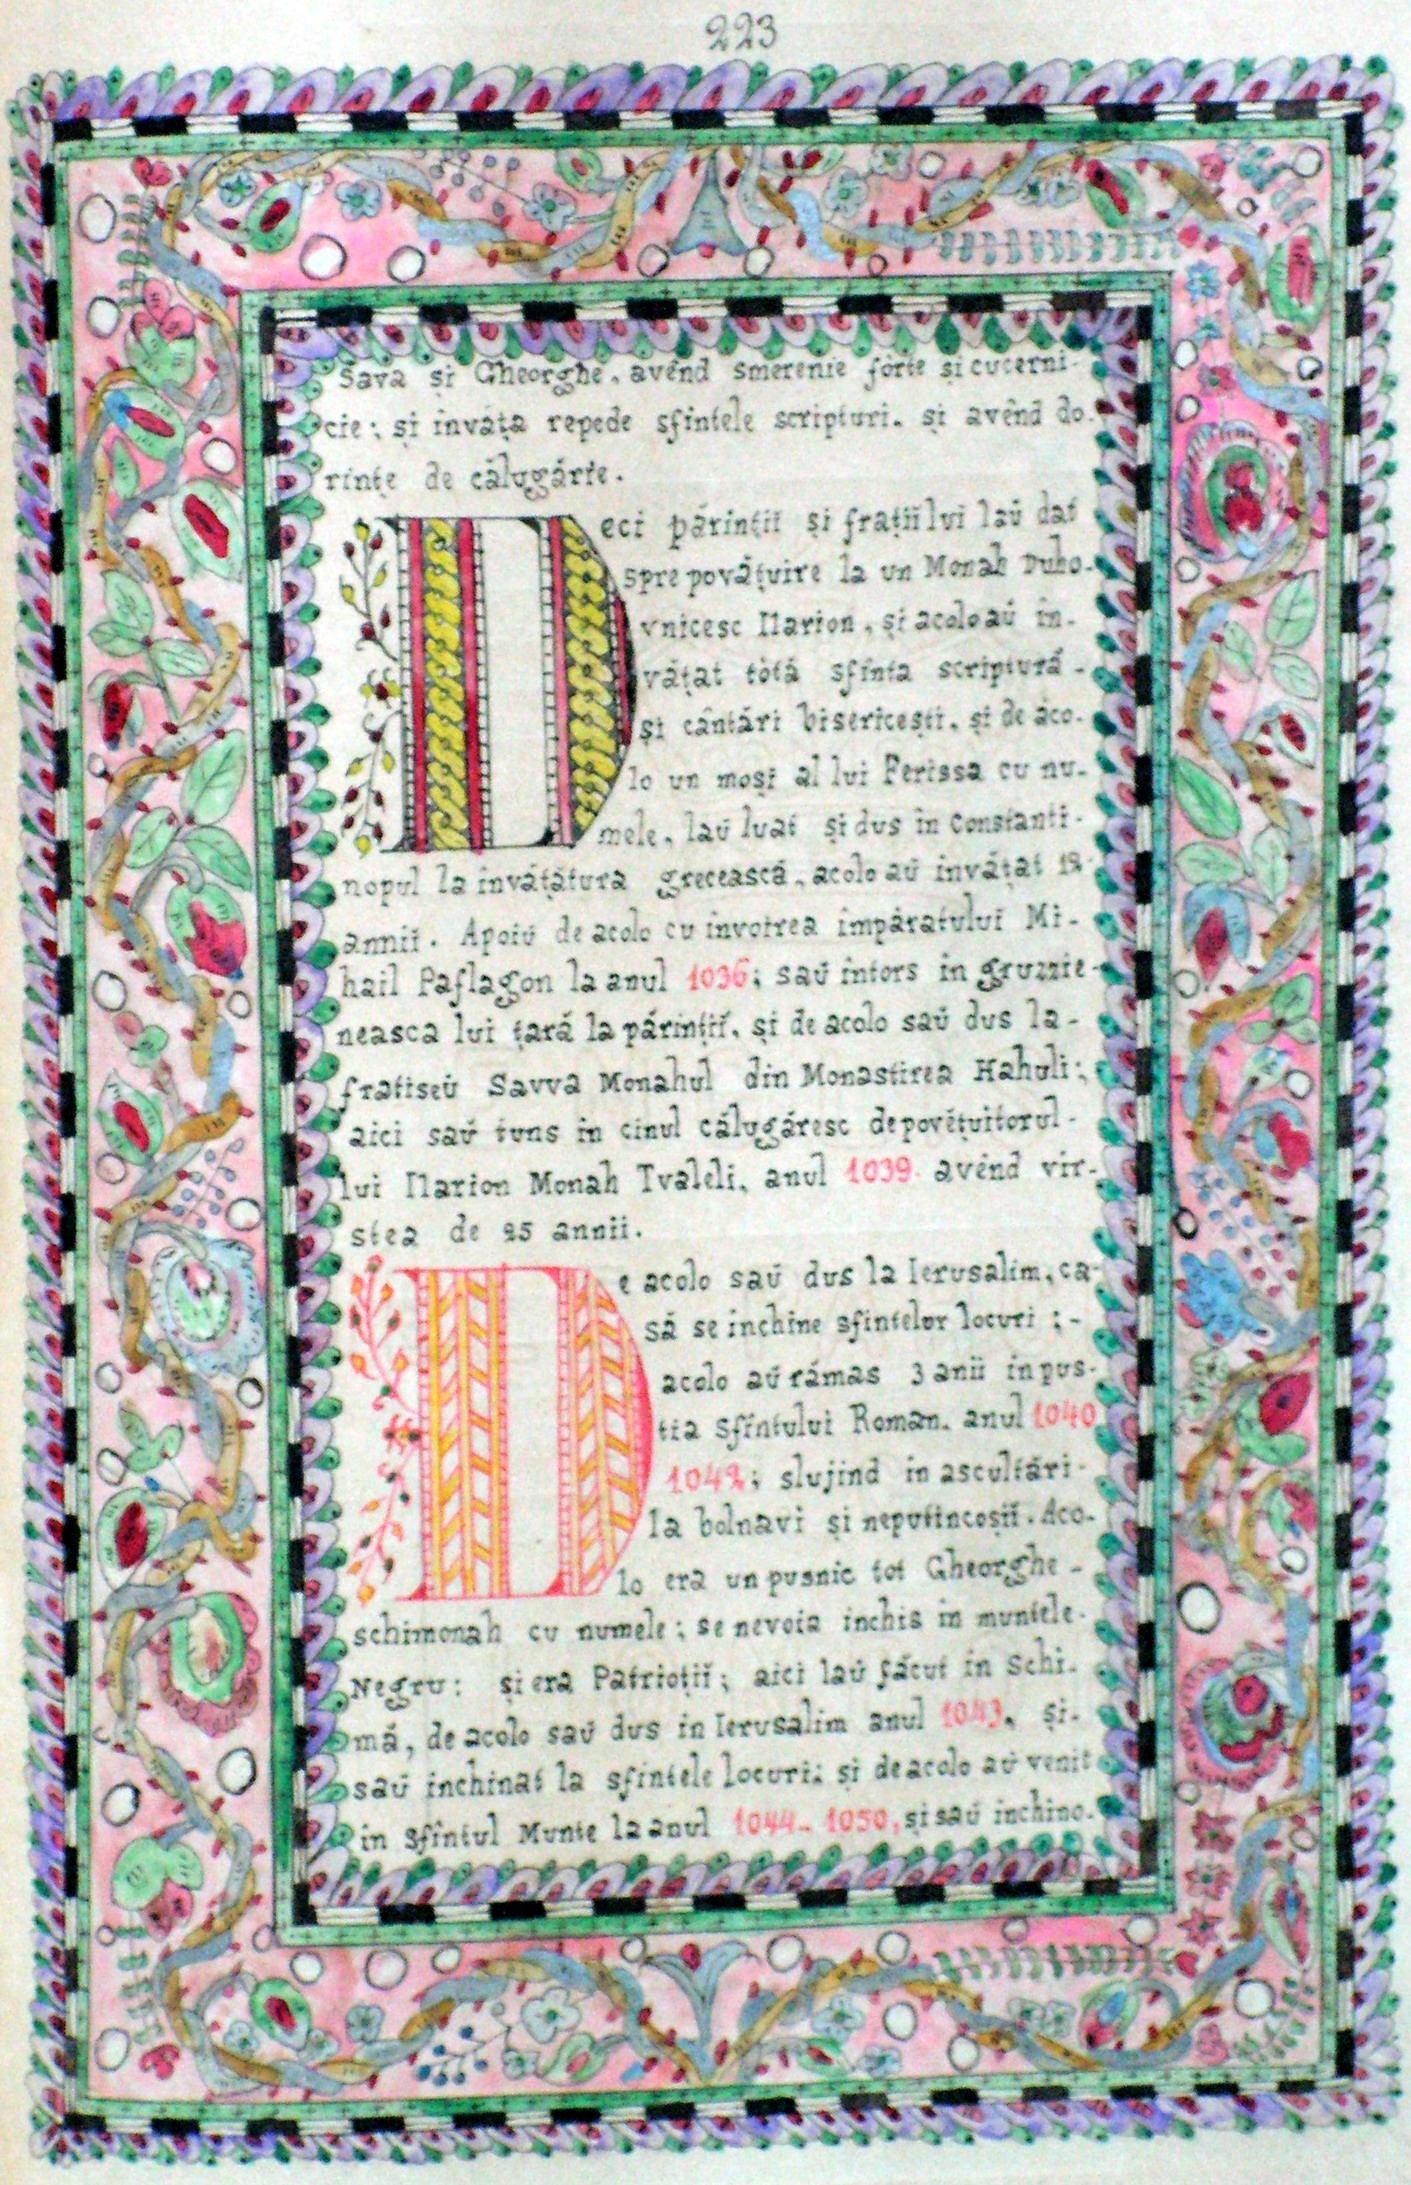 223
Sava și Gheorghe, avênd smerenie forte și cucerni-
cie; și invăța repede sfintele scripturi. și avênd do-
rințe de călugărie.
Deci părinții și frații lui laŭ dat
spre povățuire la un Monah Duho-
vnicesc Ilarion, și acolo aŭ în-
vățat tótă sfinta scriptură-
și cântări bisericești, și de aco-
lo un moși al lui Ferissa cu nu-
mele, laŭ luat și dus in Constanti-
nopul la invățătura grecească, acolo aŭ invățat 12
annii. Apoiŭ de acolo cu invoirea impăratului Mi-
hail Paflagon la anul 1036; saŭ intors in gruzzie-
neasca lui țară la părinții, și de acolo saŭ dus la-
fratiseŭ Savva Monahul din Monastirea Hahuli;
aici saŭ tuns in cinul călugăresc de povêțuitorul-
lui Ilarion Monah Tvaleli, anul 1039. avênd vir-
stea de 25 annii.
De acolo saŭ dus la Ierusalim, ca-
să se inchine sfintelor locuri ;-
acolo aŭ rămas 3 anii in pus-
tia Sfîntului Roman. anul 1040
1042; slujind in ascultări-
la bolnavi și neputincoșii. Aco-
lo era un pusnic tot Gheorghe-
schimonah cu numele; se nevoia inchis in muntele-
Negru: și era Patrioții; aici laŭ făcut in Schi-
mă, de acolo saŭ dus in Ierusalim anul 1043, și-
saŭ inchinat la sfintele locuri; și de acolo aŭ venit
in Sfîntul Munte la anul 1044-1050, și saŭ inchino-